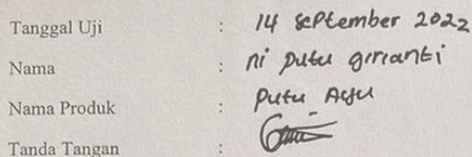 Tanggal Uji : 14 September 2022
Nama : ni putu girianti
Nama Produk : Putu Ayu
Tanda Tangan :